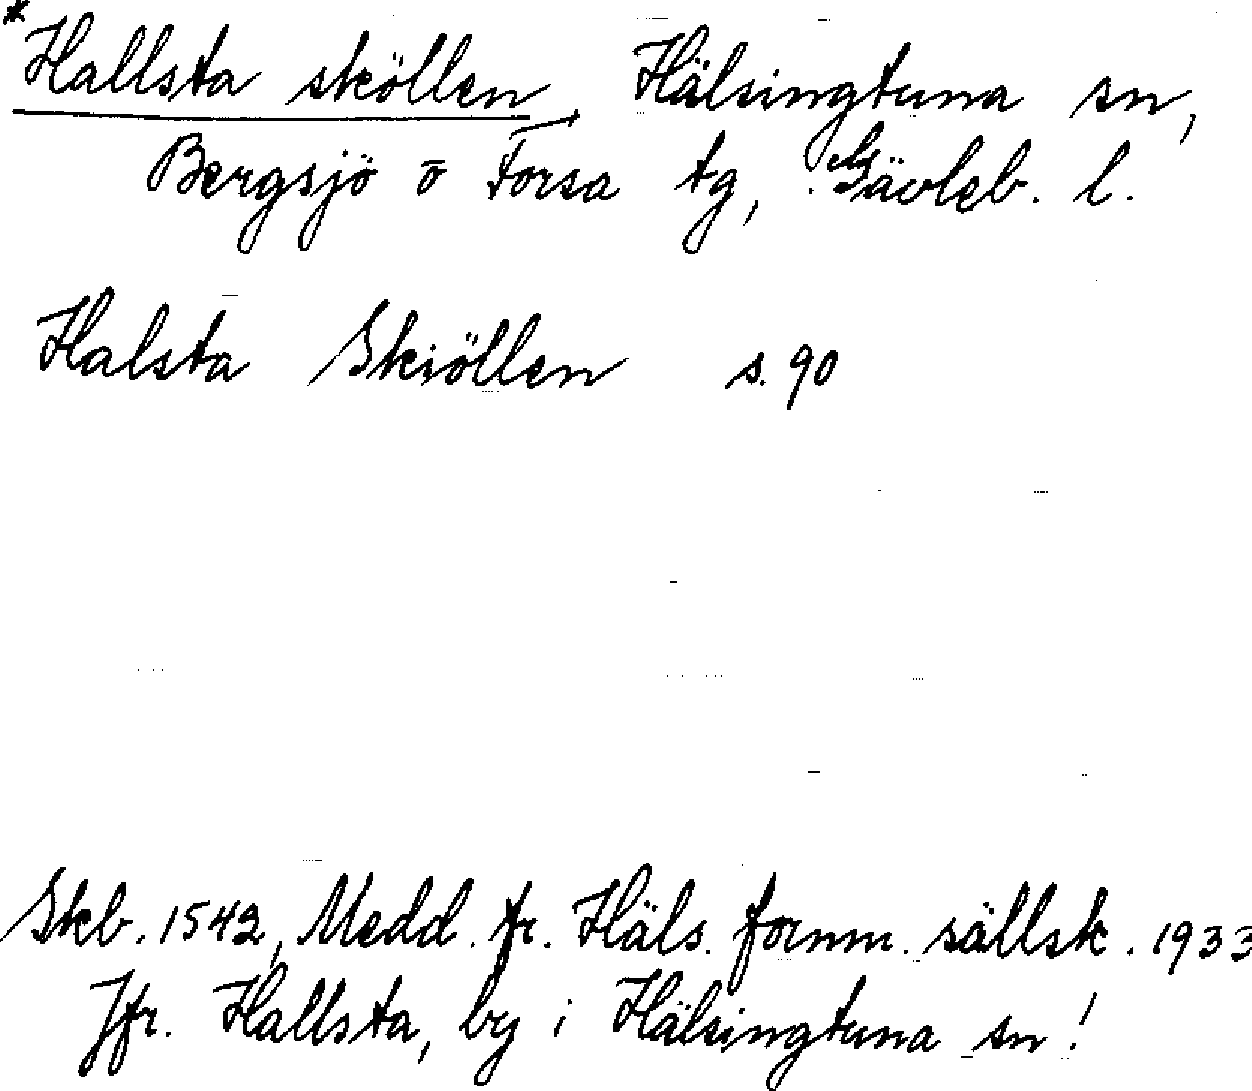 *Hallsta sköllen, Hälsingtuna sn,
Bergsjö o Forsa tg, Gävleb. l.
Halsta Skiöllen s. 90
Skb. 1542, Medd. fr. Häls. fornm. sällsk. 1933
Jfr. Hallsta, by i Hälsingtuna sn!